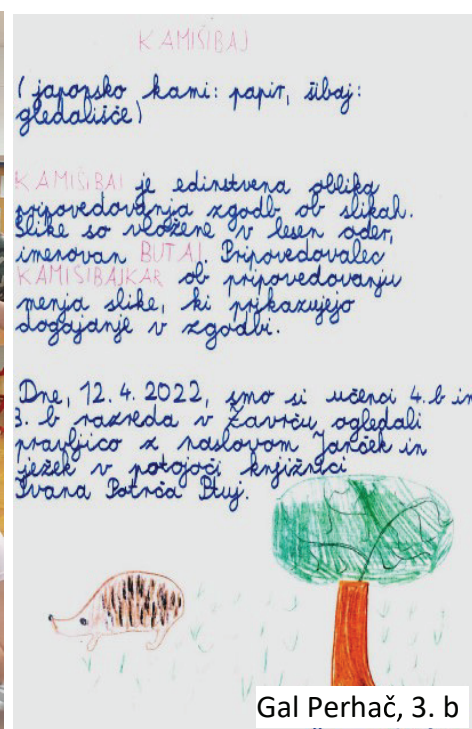 KAMIŠIBAJ
(japonsko kami: papir, šibaj:
gledališče)
KAMIŠIBAJ je edinstvena oblika
pripovedovanja zgodb ob slikah.
Slike so vložene v lesen oder,
imenovan BUTAJ. Pripovedovalec
KAMIŠIBAJKAR ob pripovedovanju
menja slike, ki prikazujejo
dogajanje v zgodbi.
Dne, 12. 4. 2022, smo si učenci 4. b in
3. b razreda v Zavrču ogledali
pravljico z naslovom Janček in
ježek v potojoči knjižnici
Ivana Potrča Ptuj.
Gal Perhač, 3. b